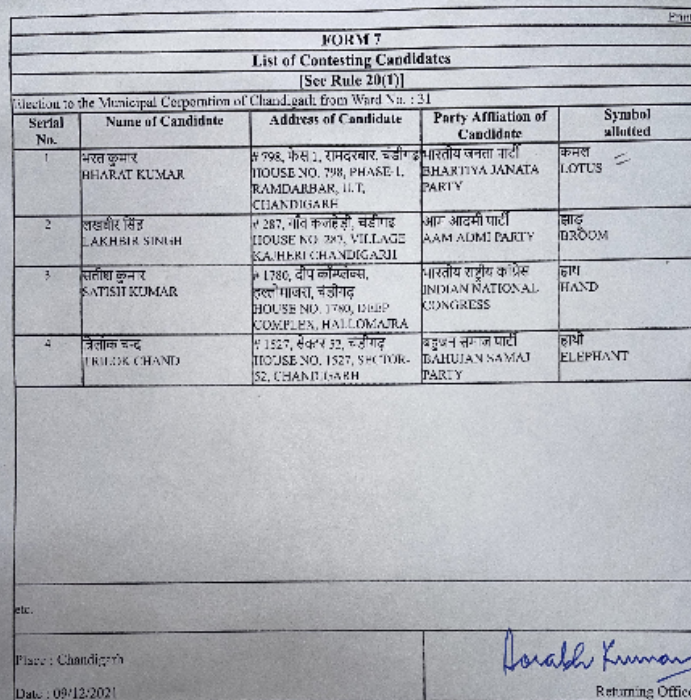 FORM 7
List of Contesting Candidates
[See Rule 20(1)]
Election to the Municipal Corporation of Chandigarh from Ward No. : 31
Serial No.
Name of Candidate
Address of Candidate
Party Affliation of Candidate
Symbol allotted
1
भरत कुमार
BHARAT KUMAR
# 798, फेस 1, रामदरबार, चंडीगढ़
HOUSE NO. 798, PHASE-1,
RAMDARBAR, U.T,
CHANDIGARH
भारतीय जनता पार्टी
BHARTIYA JANATA
PARTY
कमल
LOTUS
2
लखबीर सिंह
LAKHBIR SINGH
# 287, गाँव कजहेड़ी, चंडीगढ़
HOUSE NO. 287, VILLAGE
KAJHERI CHANDIGARH
आम आदमी पार्टी
AAM ADMI PARTY
झाड़ू
BROOM
3
सतीश कुमार
SATISH KUMAR
# 1780, दीप कॉम्प्लेक्स,
हल्लोमाजरा, चंडीगढ़
HOUSE NO. 1780, DEEP
COMPLEX, HALLOMAJRA
भारतीय राष्ट्रीय कांग्रेस
INDIAN NATIONAL
CONGRESS
हाथ
HAND
4
त्रिलोक चन्द
TRILOK CHAND
# 1527, सेक्टर 52, चंडीगढ़
HOUSE NO. 1527, SECTOR-
52, CHANDIGARH
बहुजन समाज पार्टी
BAHUJAN SAMAJ
PARTY
हाथी
ELEPHANT
etc.
Place : Chandigarh
Date : 09/12/2021
Kumar
Returning Office